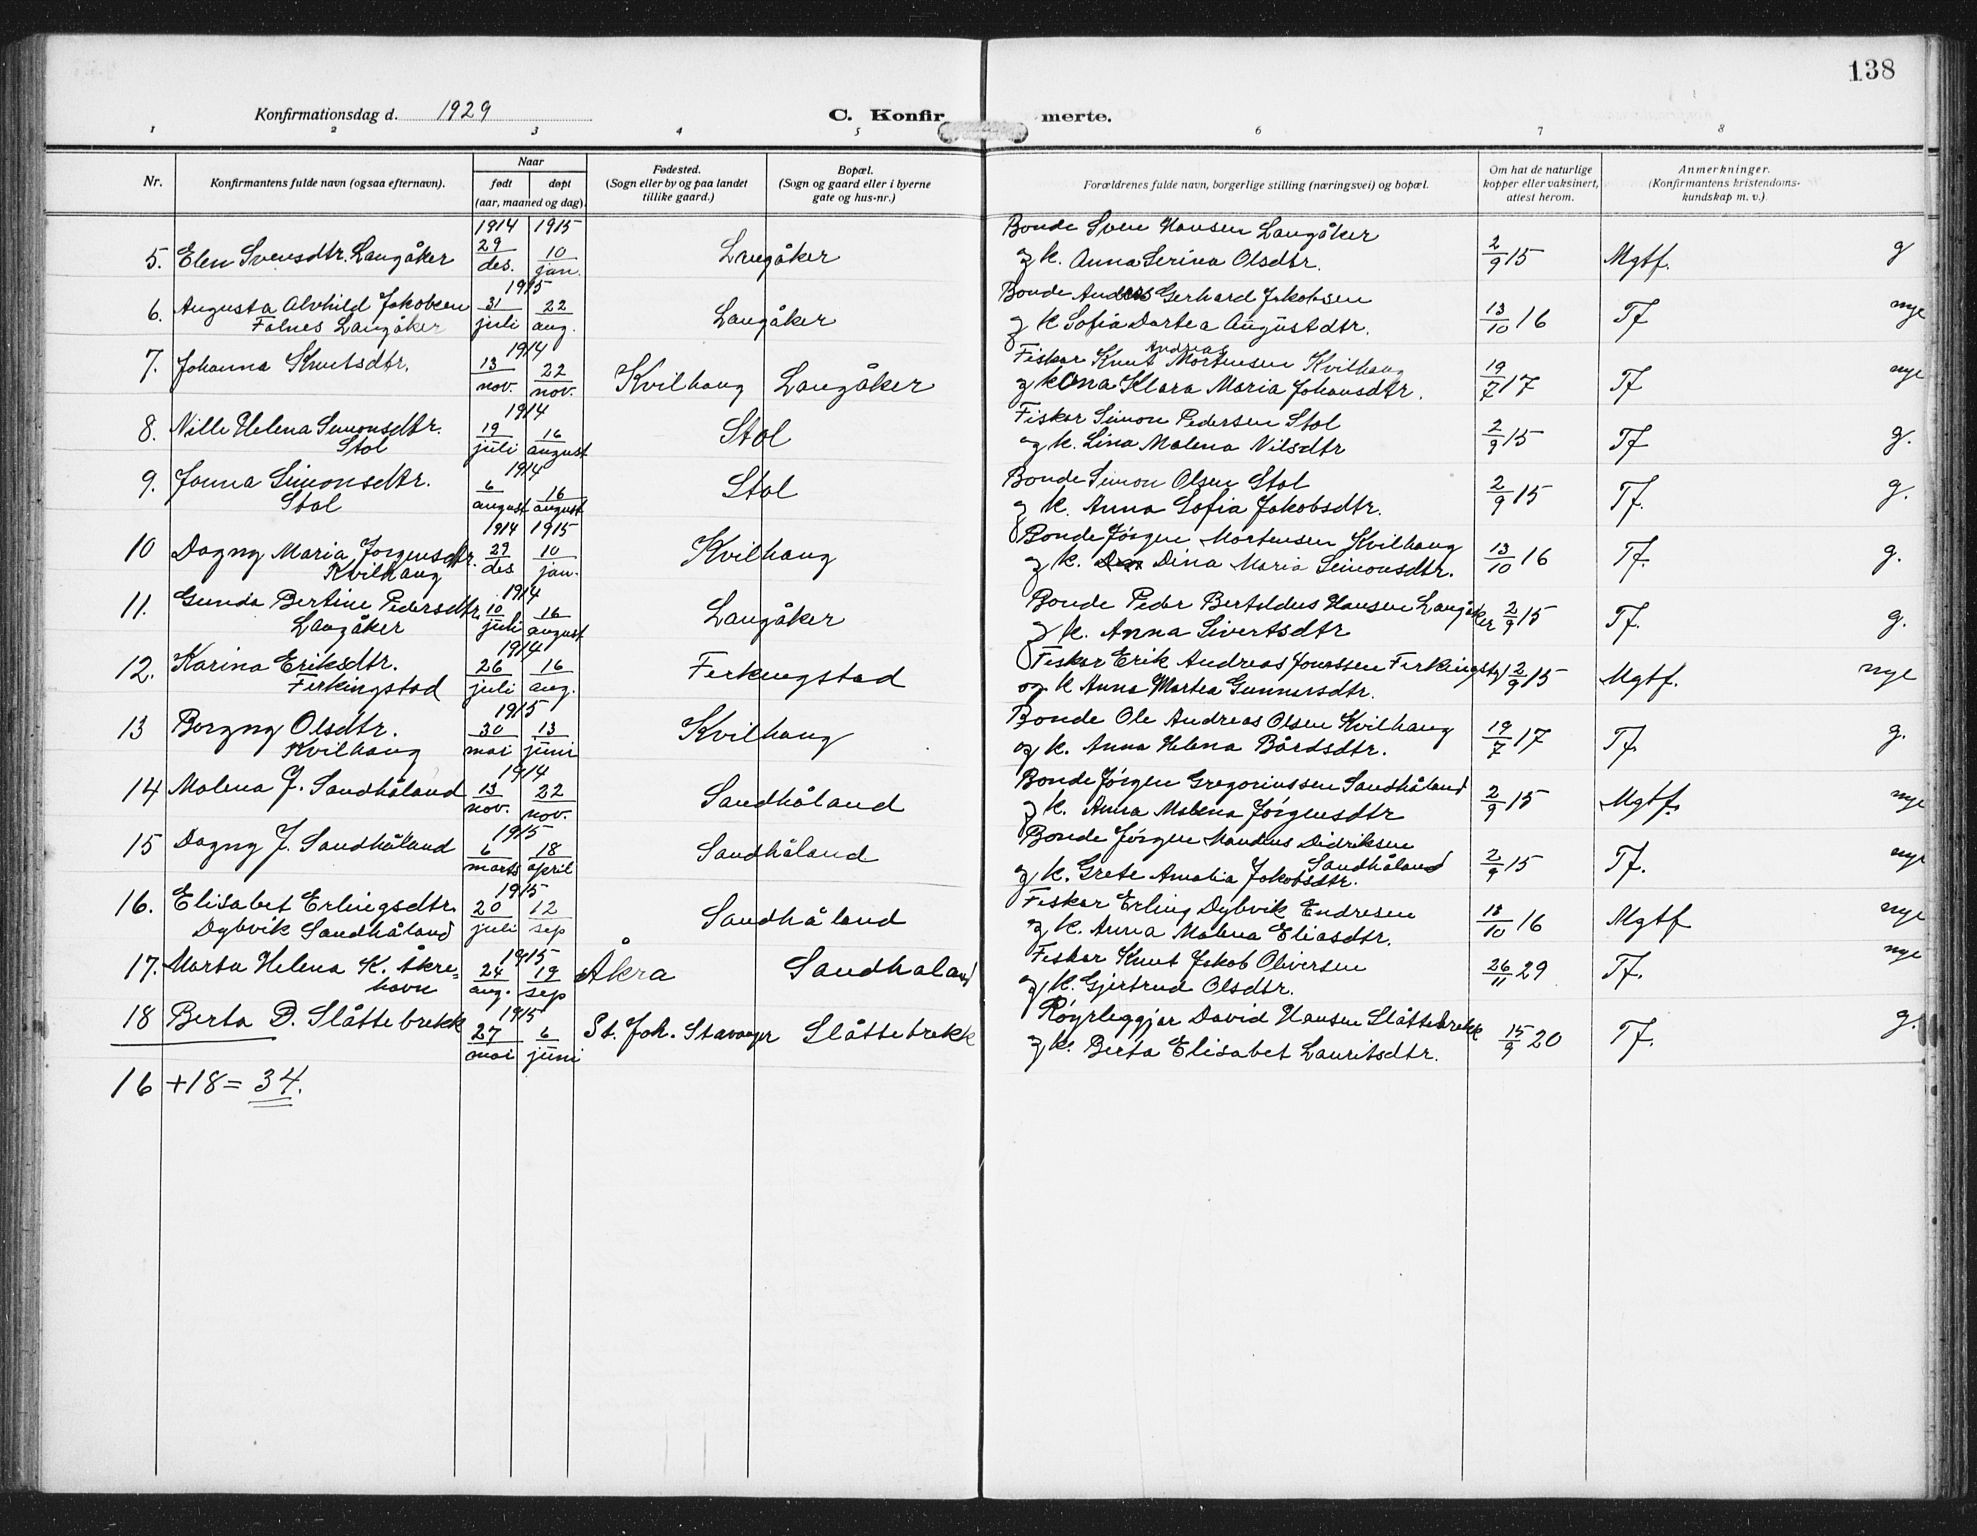 138
Konfirmationsdag d. 1929
C. Konfirmerte.
1 2 3 4 5 6 7 8
Nr.
Konfirmantens fulde navn (ogsaa efternavn).
Naar
født døpt
(aar, maaned og dag).
Fødested.
(Sogn eller by og paa landet
tillike gaard.)
Bopæl.
(Sogn og gaard eller i byerne
gate og hus-nr.)
Forældrenes fulde navn, borgerlige stilling (næringsvei) og bopæl.
Om hat de naturlige
kopper eller vaksinert,
attest herom.
Anmerkninger.
(Konfirmantens kristendoms-
kundskap m. v.)
1914 1915 Bonde Sven Hansen Langåker
5. Elen Svensdtr. Langåker 29/des. 10/jan. Langåker og k. Anna Serina Olsdtr. 2/9 15 Mgtf. g
1915 Bonde Anders Gerhard Jakobsen
6. Augusta Alvhild Jakobsen 31/juli 22/aug. Langåker 13/10 16 Tf nye
Falnes Langåker og k Sofia Dortea Augustdtr.
1914 Fisker Knut Andreas Mortensen Kvilhaug
7. Johanna Knutsdtr. 13/nov. 22/nov. Kvilhaug Langåker og k Ona Klara Maria Johansdtr. 19/7 17 Tf nye
1914 Fisker Simon Pedersen Stol
8. Nille Helena Simonsdtr. 19/juli 16/august Stol 2/9 15 Tf g.
Stol og k. Lina Malena Nilsdtr
1914 Bonde Simon Olsen Stol
9. Jonna Simonsdtr. 6/august 16/august Stol 2/9 15 Tf. g.
Stol og k. Anna Sofia Jakobsdtr.
1914 1915 Bonde Jørgen Mortensen Kvilhaug
10 Dagny Maria Jørgensdtr. 29/des 10/jan. Kvilhaug 13/10 16 Tf. g.
Kvilhaug og k. Dina Maria Simonsdtr.
1914 Bonde Peder Berteldus Hansen Langåker
11. Gunda Bertine Pedersdtr. 10/juli 16/august Langåker 2/9 15 Tf. g.
Langåker og k. Anna Sivertsdtr
1914 Fisker Erik Andreas Jonassen Ferkingstad
12. Karina Eriksdtr. 26/juli 16/aug. Ferkingstad 2/9 15 Mgtf. nye
Ferkingstad og k Anna Martea Gunnarsdtr.
1915 Bonde Ole Andreas Olsen Kvilhaug
13 Borgny Olsdtr. 30/mai 13/juni Kvilhaug 19/7 17 Tf. g.
Kvilhaug og k. Anna Helena Bårdsdtr.
1914 Bonde Jørgen Gregoriussen Sandhåland
14 Malena J. Sandhåland 13/nov. 22/nov. Sandhåland og k. Anna Malena Jørgensdtr 2/9 15 Mgtf. nye
1915 Bonde Jørgen Mandius Didriksen
15 Dagny J. Sandhåland 6/marts 18/april Sandhåland Sandhåland 2/9 15 Tf. nye
og k. Grete Amalia Jakobsdtr.
1915 Fisker Erling Dybvik Endresen
16. Elisabet Erlingsdtr. 20/juli 12/sep Sandhåland 13/10 16 Mgtf nye
Dybvik Sandhåland og k. Anna Malena Eliasdtr.
1915 Fisker Knut Jakob Oliversen
17. Marta Helena K. Åkre= 24/aug. 19/sep Åkra Sandhaland 26/11 29 Tf. nye
havn og k. Gjertrud Olsdtr.
1915 Røyrleggjar David Hansen Slåttebrekk
18 Berta D. Slåttebrekk 27/mai 6/juni St. Joh. Stavanger Slåttebrekk 15/9 20 Tf. g.
og k. Berta Elisabet Lauritsdtr.
16 + 18 = 34.